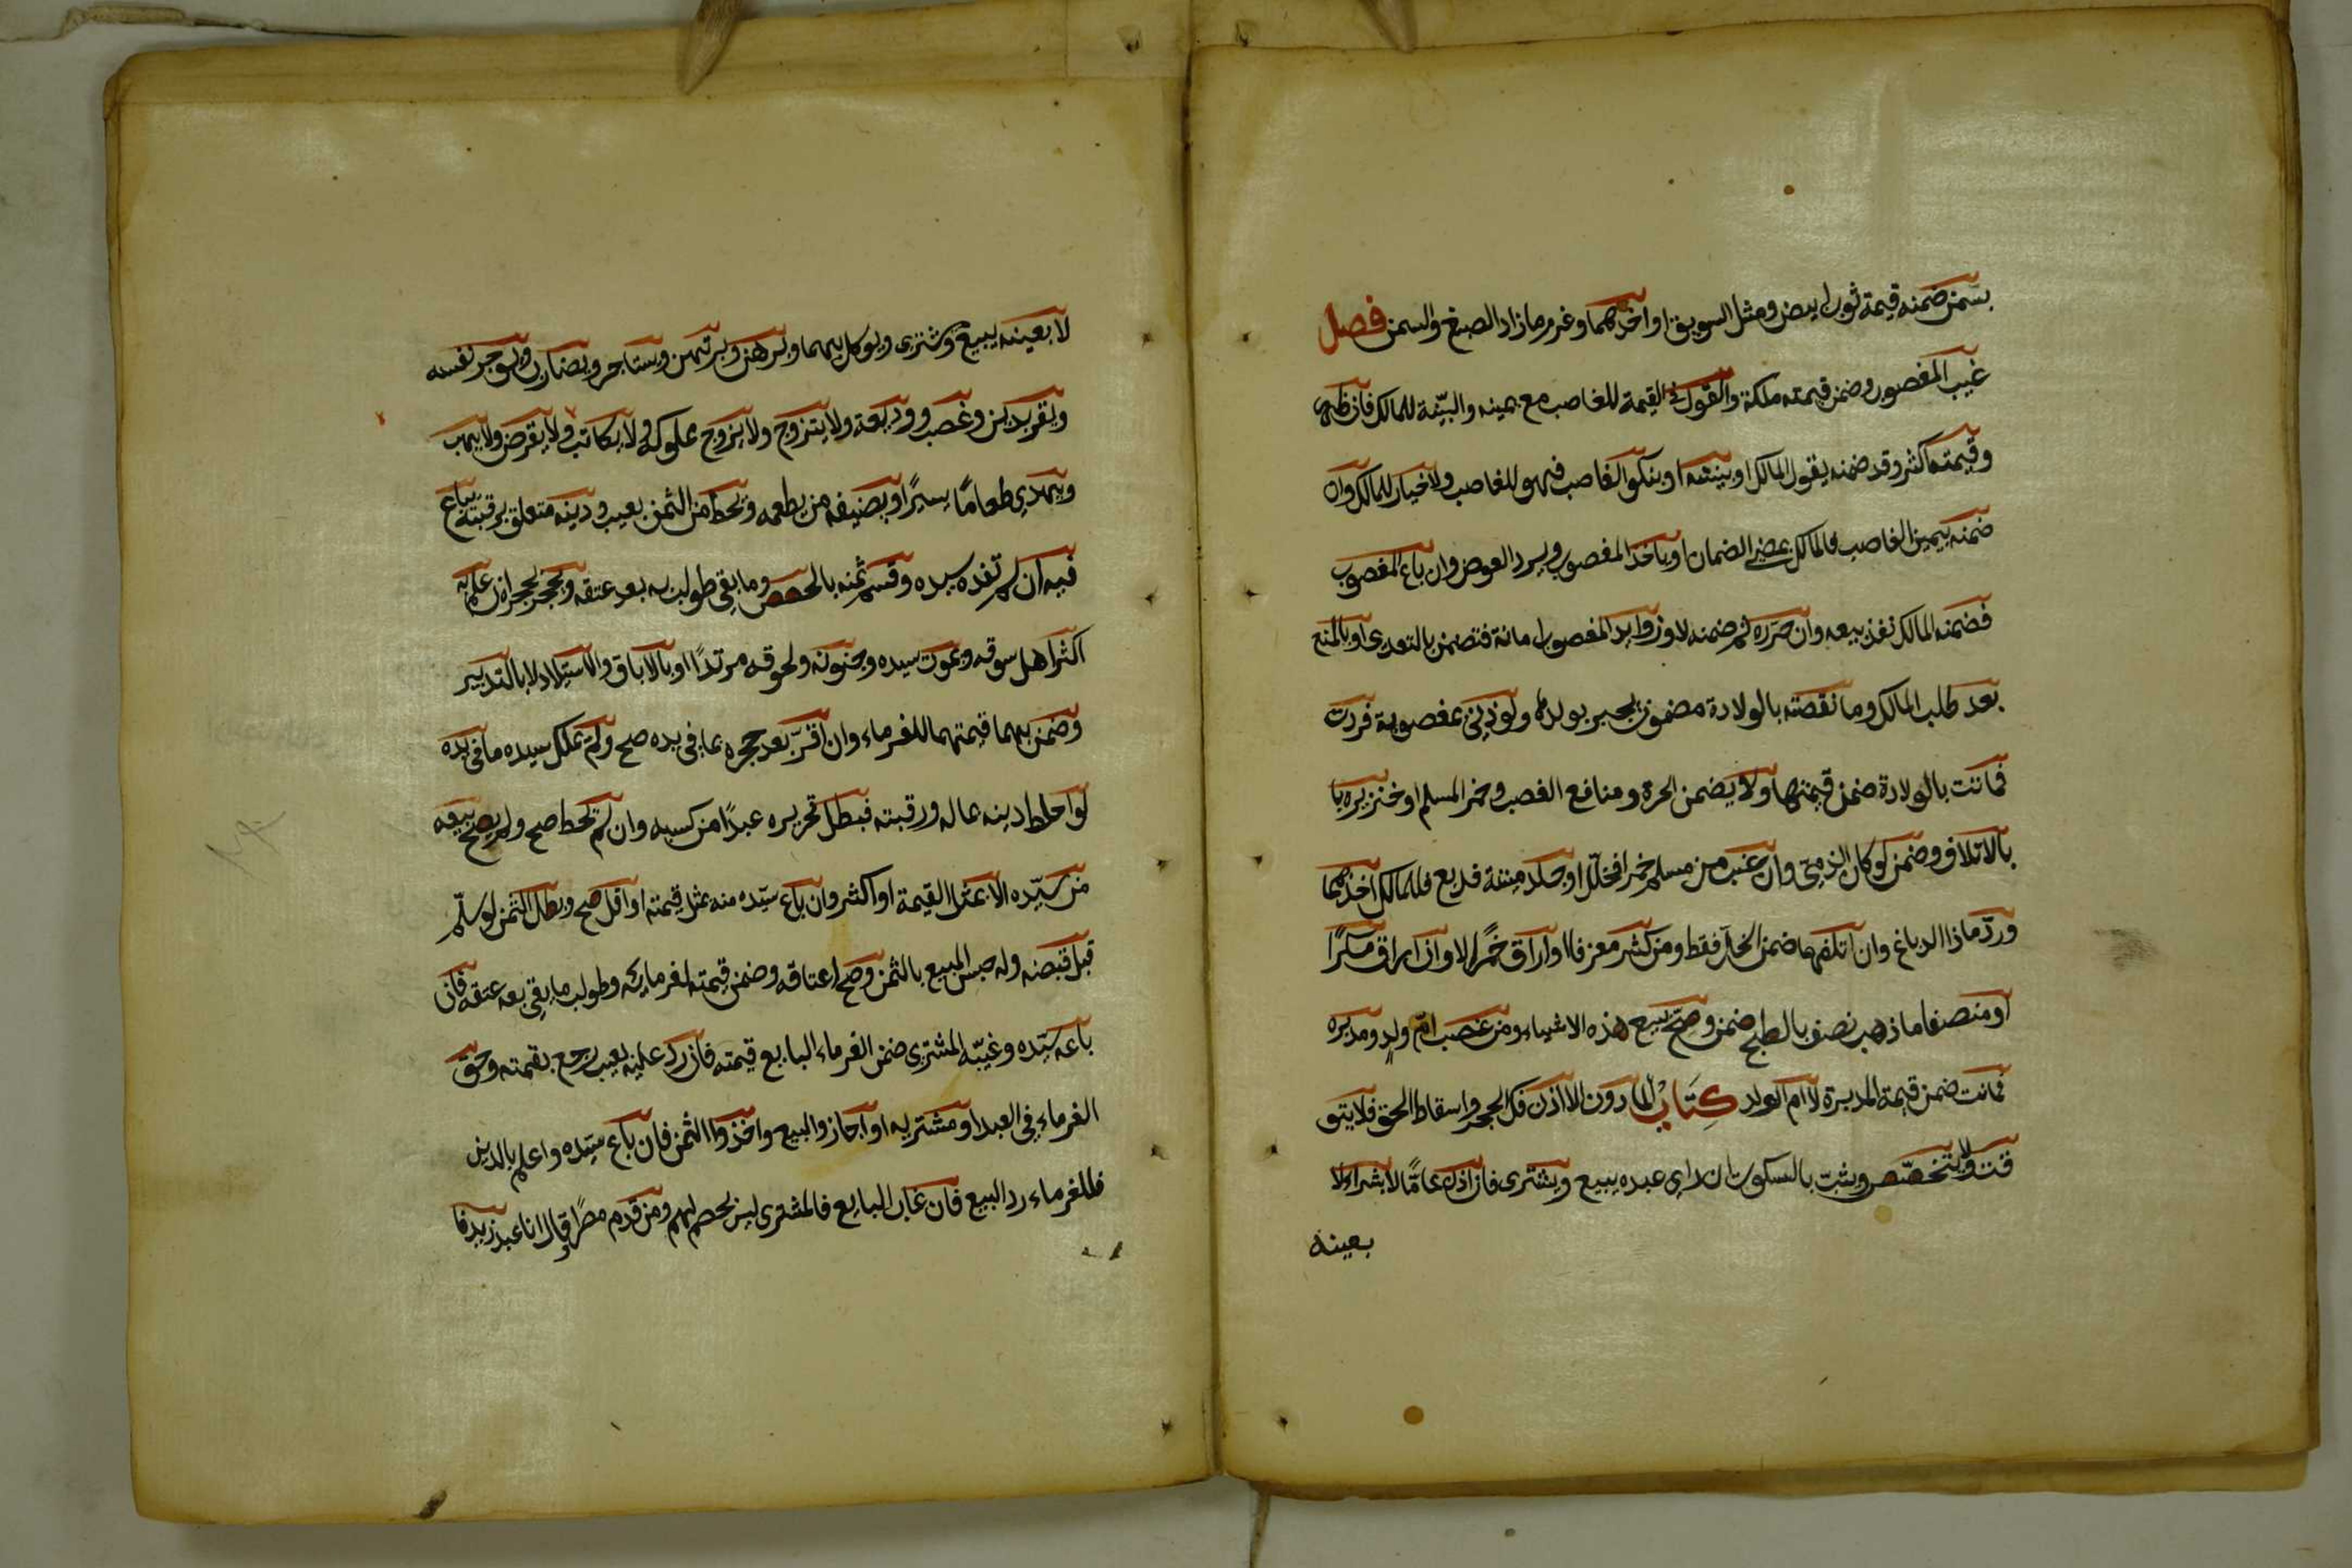 بسمن ضمنه قيمة ثوب ابيض ومثل السويق او اخذهما وغرم ما زاد الصبغ والسمن فصل
غيب المغصوب وضمن قيمته ملكه والقول في القيمة للغاصب مع يمينه والبينة للمالك فان ظهر
وقيمته اكثر وقد ضمنه بقول المالك او ببينته او بنكول الغاصب فهو للغاصب ولا خيار للمالك وان
ضمنه بيمين الغاصب فالمالك يمضي الضمان او ياخذ المغصوب ويرد العوض وان باع المغصوب
فضمنه المالك نفذ بيعه وان حرره ثم ضمنه لا وزوايد المغصوب امانة فتضمن بالتعدي او بالمنع
بعد طلب المالك وما نقصته بالولادة مضمون يجبر بولدها ولو زني بمغصوبة فردت
فماتت بالولادة ضمن قيمتها ولا يضمن الحرة ومنافع الغصب وخمر المسلم او خنزيره با
بالاتلاف وضمن لو كان لذمي وان غصب من مسلم خمرا فخلل او جلد ميتة فدبغ فللمالك اخذهما
ورد ما زاد الدباغ وان اتلفهما ضمن الخل فقط ومن كسر معزفا او اراق خمرا لا وان اراق سكرا
او منصفا ما ذهب نصف بالطبخ ضمن وصح بيع هذه الاشياء ومن غصب ام ولد ومدبره
فماتت ضمن قيمة المدبرة لا ام الولد كتاب الماذون الا اذن فك الحجر واسقاط الحق فلا يتو
قت ولا يتخصص ويثبت بالسكوت ان راى عبده يبيع ويشترى فان اذن عاما لا بشراء لا
بعينه
لا بعينه يبيع ويشترى ويوكل بهما ويرهن ويرتهن ويستاجر ويضارب ويوجر نفسه
ويقر بدين وغصب ووديعة ولا يتزوج ولا يزوج مملوكه ولا يكاتب ولا يقرض ولا يهب
ويهدي طعاما يسيرا او يضيف من يطعمه ويحط من الثمن بعيب ودينه متعلق برقبته يباع
فيه ان لم تفده سيده وقسم ثمنه بالحصص وما بقي طولب به بعد عتقه ويحجر بحجره ان علم به
اكثر اهل سوقه وبموت سيده وجنونه ولحوقه مرتدا او بالاباق والاستيلاد لا بالتدبير
وضمن بهما قيمتهما للغرماء وان اقر بعد حجره بما في يده صح ولم يملك سيده ما في يده
لو احاط دينه بماله ورقبته فبطل تحريره عبدا من كسبه وان لم يحط صح ولم يصح بيعه
من سيده الا بمثل القيمة او اكثر وان باع سيده منه بمثل قيمته او اقل صح وبطل الثمن لو سلم
قبل قبضه وله حبس المبيع بالثمن وصح اعتاقه وضمن قيمته لغرمايه وطولب ما بقي بعد عتقه فان
باعه سيده وغيبه المشترى ضمن الغرماء البايع قيمته فان رد عليه بعيب رجع بقيمته وحق
الغرماء في العبد او مشتريه او اجازوا البيع واخذوا الثمن فان باع سيده واعلم بالدين
فللغرماء رد البيع فان غاب البايع فالمشترى ليس بخصم لهم ومن قدم مصرا وقال انا عبد زيد فا